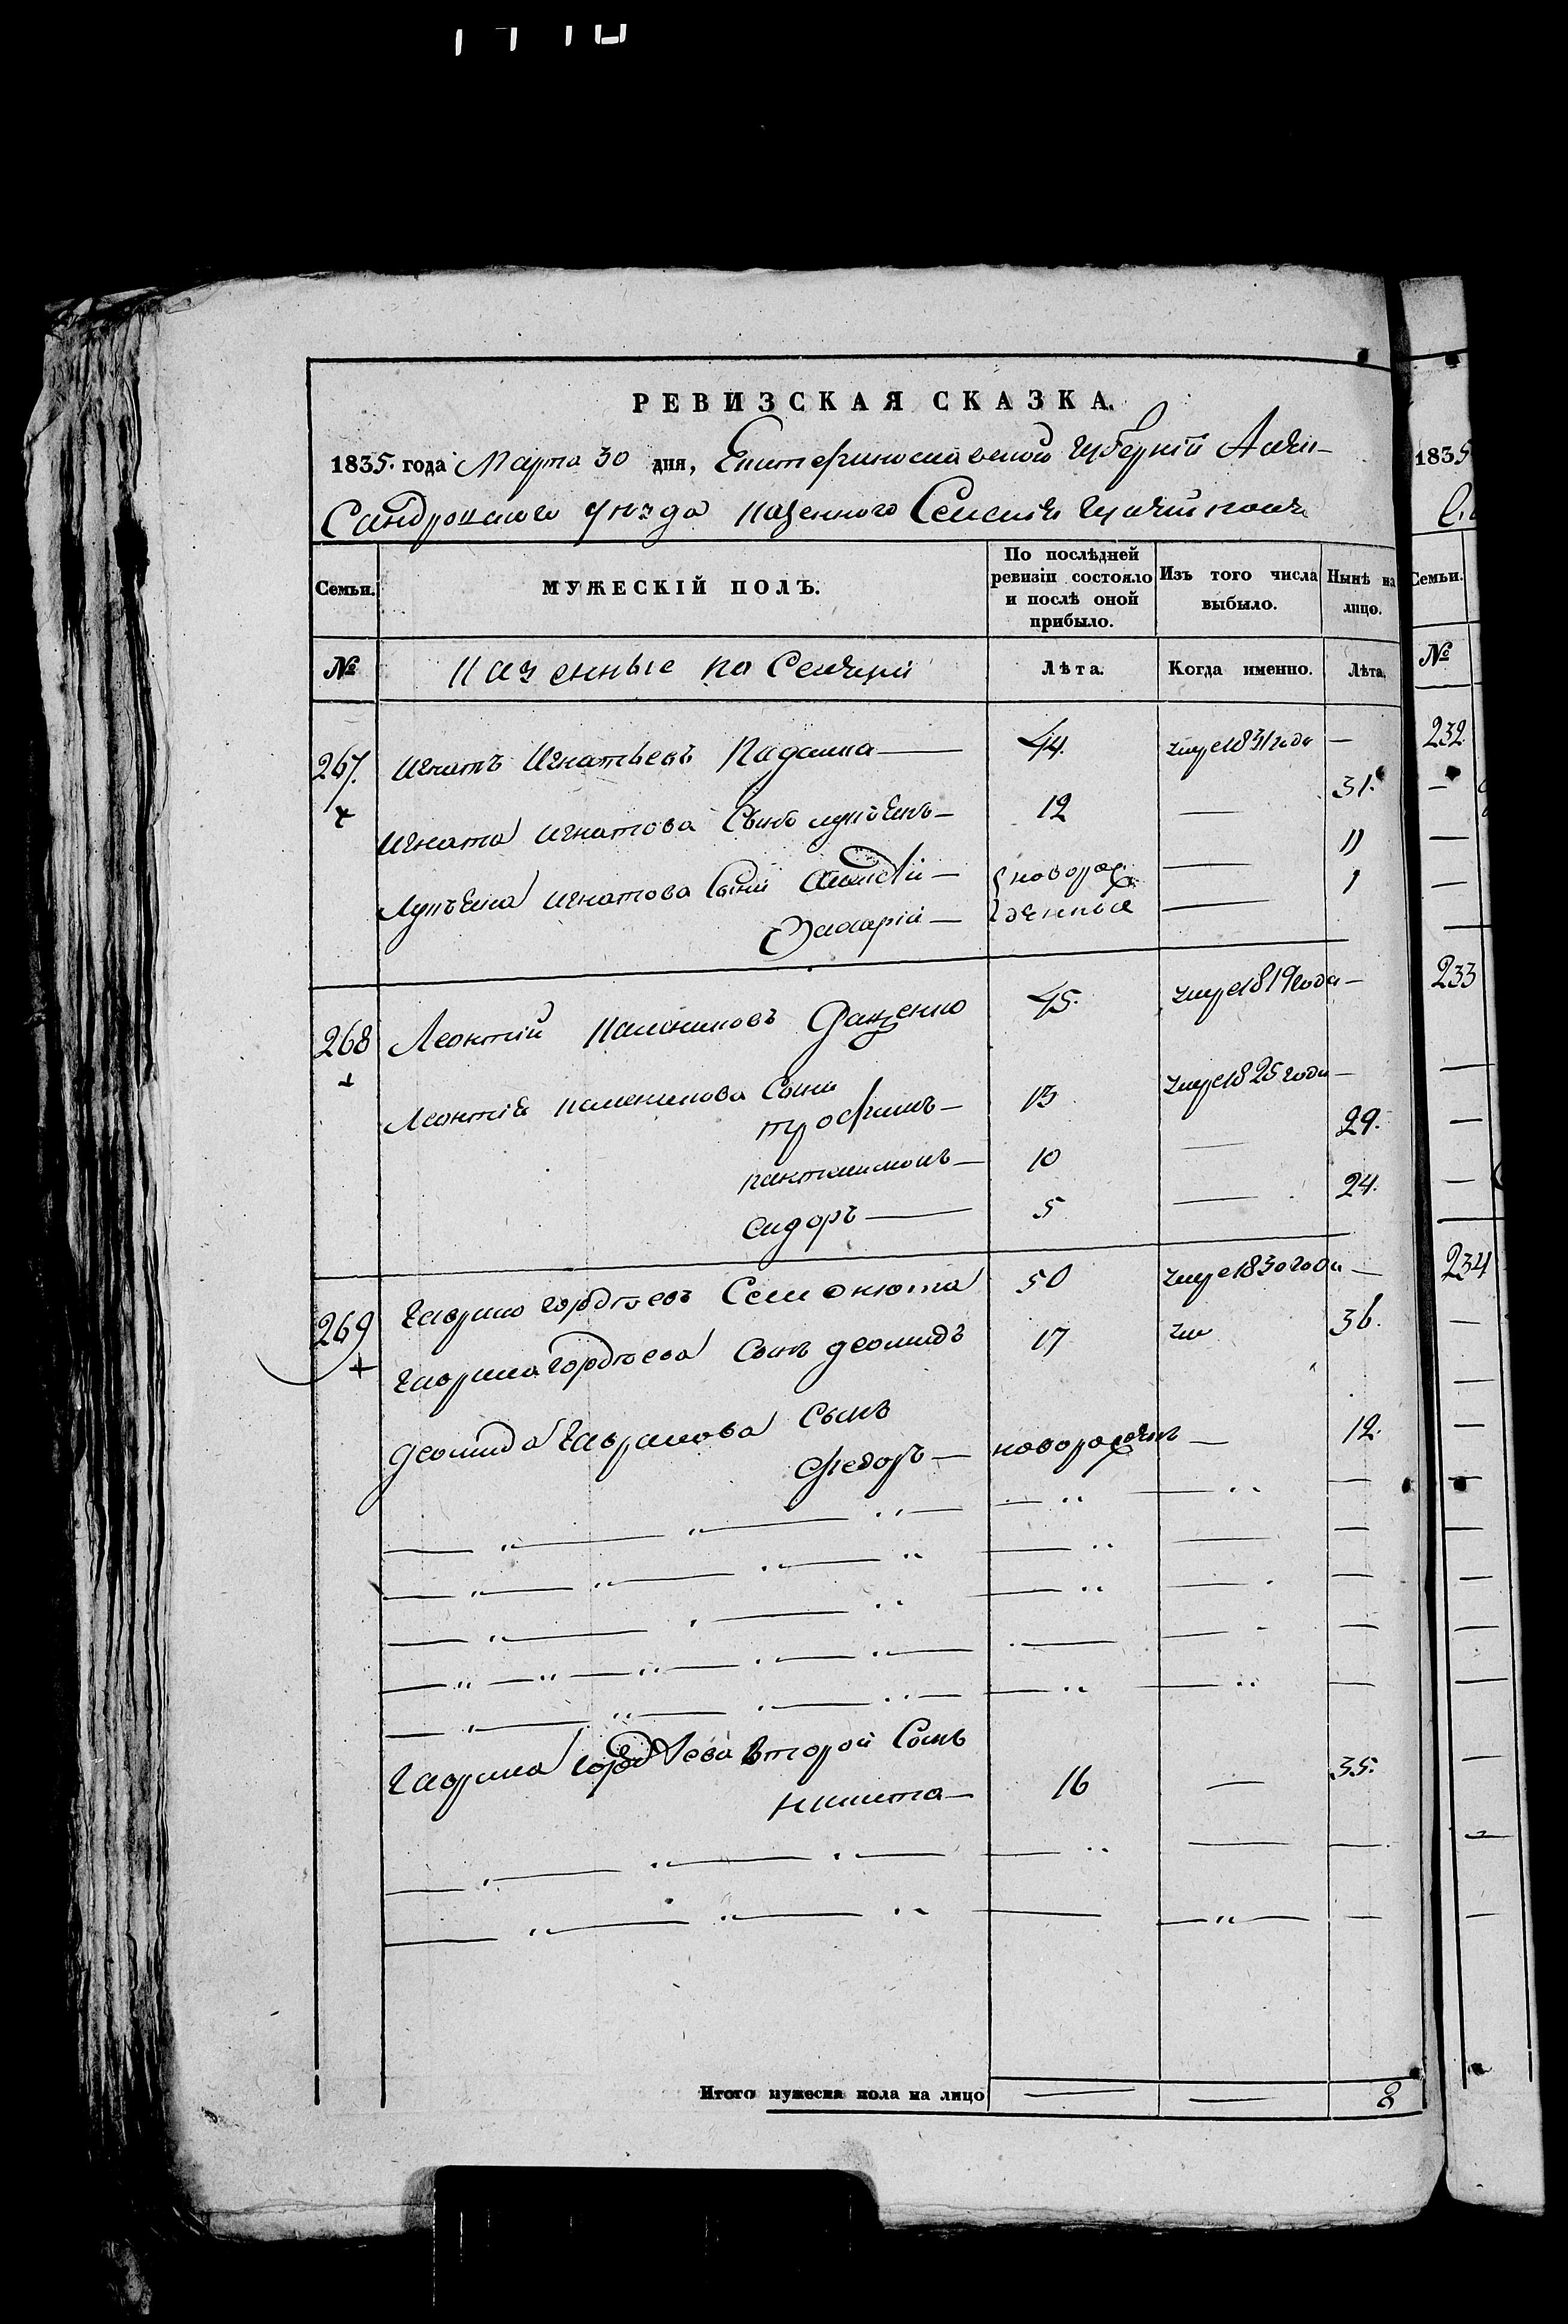 РЕВИЗСКАЯ СКАЗКА.
1835. года Марта 30 дня, Екатеринославской губернии Алек-
сандровского уезда казенного Селения
Семьи. МУЖЕСКІЙ ПОЛЪ. По послѣдней ревизіи состояло и послѣ оной прибыло. Изъ того числа выбыло. Нынѣ на лицо.
№ казенные поселяне Лѣта. Когда именно. Лѣта.
267. Игнатъ Игнатьевъ 44. умре 1831 года —
Игната Игнатова Сынъ 12 — 31.
Игнатова Сыны новорож — 11
Захарій — денные — 1
268 Леонтій Даценко 45. умре 1819 года —
Леонтія Сыны
трофимъ — 13 умре 1825 года —
пантилимонъ — 10 — 29.
сидоръ — 5 — 24.
269 Гаврило гордѣевъ Семенюта 50 умре 1830 года —
Гаврила гордѣева Сынъ деомидъ 17 36.
деомида Гаврилова Сынъ
федоръ — новорожденъ — 12.
Гаврила гордѣева второй Сынъ
никита — 16 — 35.
Итого мужеска пола на лицо — — 8
1835
Семьи.
№
232.
233
234